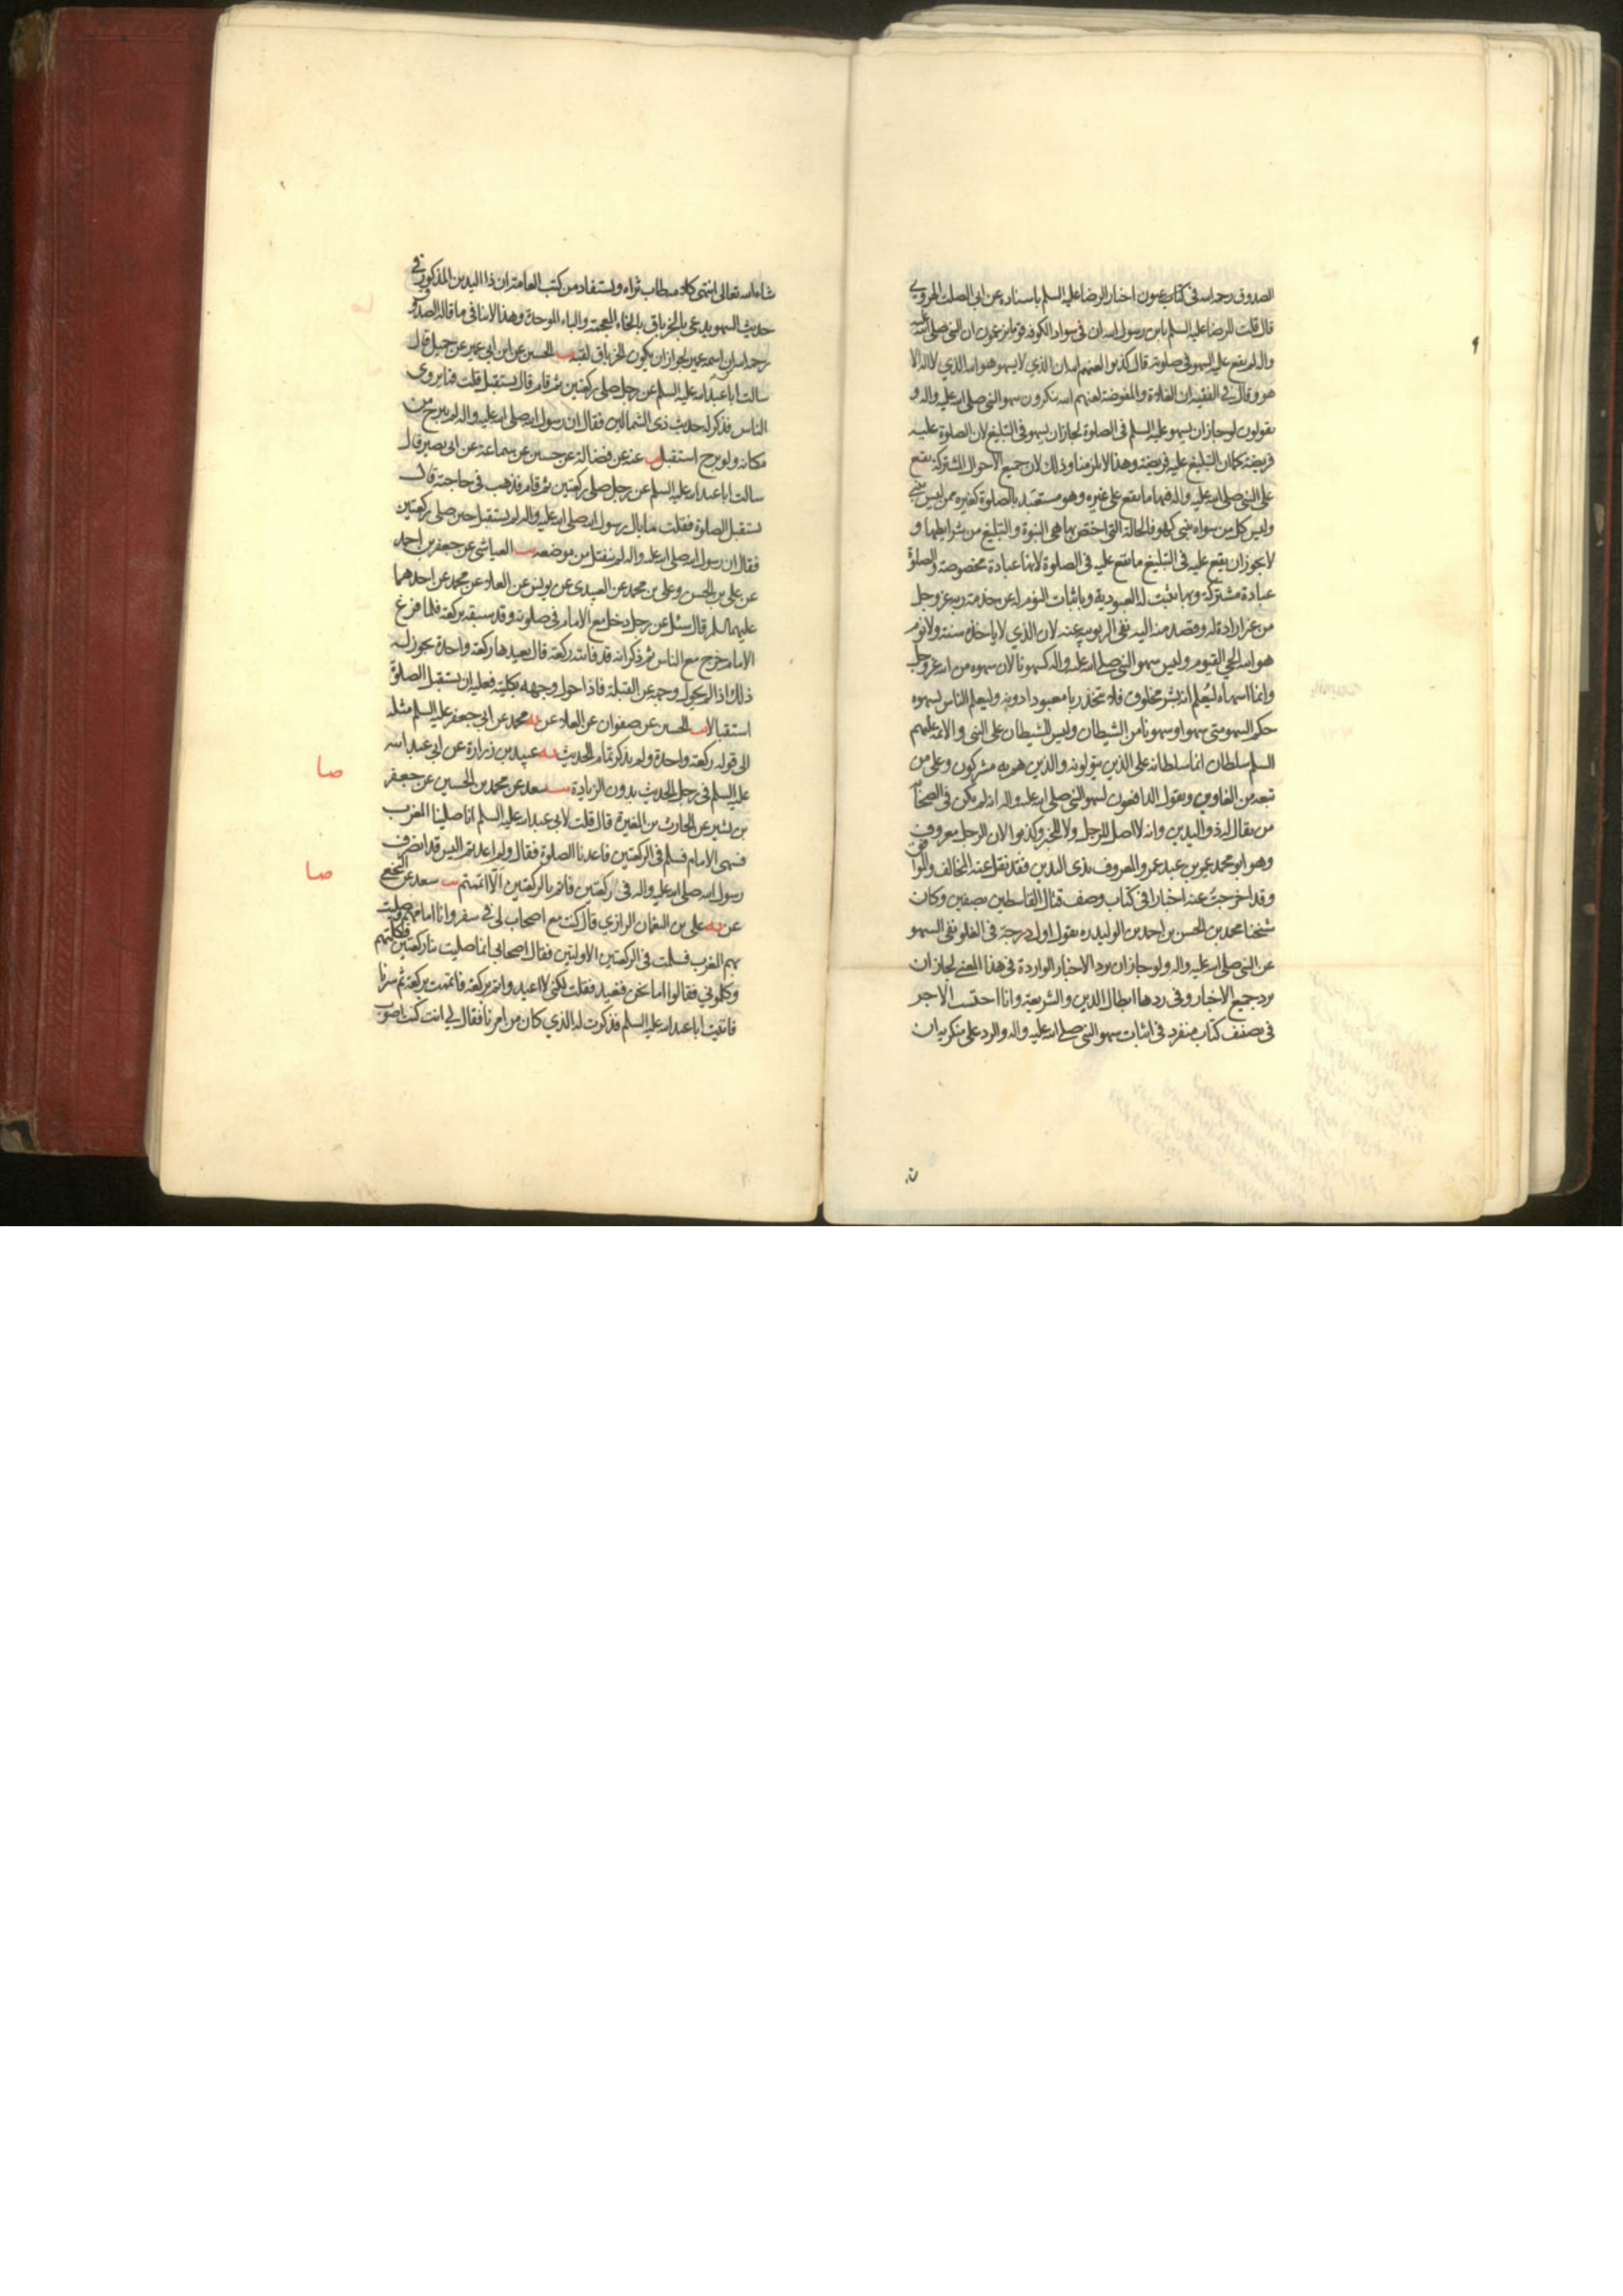 الصدوق رحمه الله في كتاب عيون اخبار الرضا عليه السلم باسناده عن ابي الصلت الهروي
قال قلت للرضا عليه السلم يابن رسول الله ان في سواد الكوفة قوما يزعمون ان النبي صلى الله عليه
واله لم يقع عليه السهو في صلوته قال كذبوا لعنهم الله ان الذي لا يسهو هو الله الذي لا اله الا
هو وقال في الفقيه ان الغلاة والمفوضة لعنهم الله ينكرون سهو النبي صلى الله عليه واله و
يقولون لو جاز ان يسهو عليه السلم في الصلوة لجاز ان يسهو في التبليغ لان الصلوة عليه
فريضة كما ان التبليغ عليه فريضة وهذا لا يلزمنا وذلك لان جميع الاحوال المشتركة يقع
على النبي صلى الله عليه واله فيها ما يقع على غيره وهو متعبد بالصلوة كغيره ممن ليس بنبي
وليس كل من سواه بنبي كهو فالحالة التي اختص بها هي النبوة والتبليغ من شرايطها و
لا يجوز ان يقع عليه في التبليغ ما يقع عليه في الصلوة لانها عبادة مخصوصة والصلوة
عبادة مشتركة وبها تثبت له العبودية وباثبات النوم له عن خدمة ربه عز وجل
من غير ارادة له وقصد منه اليه نفي الربوبية عنه لان الذي لا ياخذه سنة ولا نوم
هو الله الحي القيوم وليس سهو النبي صلى الله عليه واله كسهونا لان سهوه من الله عز وجل
وانما اسهاه ليعلم انه بشر مخلوق فلا يتخذ ربا معبودا دونه وليعلم الناس بسهوه
حكم السهو متى سهوا وسهونا من الشيطان وليس للشيطان على النبي والائمة عليهم
السلم سلطان انما سلطانه على الذين يتولونه والذين هم به مشركون وعلى من
تبعه من الغاوين ويقول الدافعون لسهو النبي صلى الله عليه واله انه لم يكن في الصحابة
من يقال له ذو اليدين وانه لا اصل للرجل ولا للخبر وكذبوا لان الرجل معروف
وهو ابو محمد عمير بن عبد عمرو المعروف بذي اليدين فقد نقل عنه المخالف والموافق
وقد اخرجت عنه اخبارا في كتاب وصف قتال القاسطين بصفين وكان
شيخنا محمد بن الحسن بن احمد بن الوليد ره يقول اول درجة في الغلو نفي السهو
عن النبي صلى الله عليه واله ولو جاز ان يرد الاخبار الواردة في هذا المعنى لجاز ان
يرد جميع الاخبار وفي ردها ابطال الدين والشريعة وانا احتسب الاجر
في تصنيف كتاب منفرد في اثبات سهو النبي صلى الله عليه واله والرد على منكريه ان
شاء الله تعالى انتهى كلامه طاب ثراه ويستفاد من كتب العامة ان ذا اليدين المذكور في
حديث السهو يدعى بالخرباق بالخاء المعجمة والباء الموحدة وهذا لا ينافي ما قاله الصدوق
رحمه الله من ان اسمه عمير لجواز ان يكون الخرباق لقبه يب الحسين عن ابن ابي عمير عن جميل قال
سالت ابا عبد الله عليه السلم عن رجل صلى ركعتين ثم قام قال يستقبل قلت فما يروى
الناس فذكر له حديث ذي الشمالين فقال ان رسول الله صلى الله عليه واله لم يبرح من
مكانه ولو برح استقبل يب عنه عن فضالة عن حسين عن سماعة عن ابي بصير قال
سالت ابا عبد الله عليه السلم عن رجل صلى ركعتين ثم قام فذهب في حاجته قال
يستقبل الصلوة فقلت ما بال رسول الله صلى الله عليه واله لم يستقبل حين صلى ركعتين
فقال ان رسول الله صلى الله عليه واله لم ينفتل من موضعه يب العياشي عن جعفر بن احمد
عن علي بن الحسن وعلي بن محمد عن العبيدي عن يونس عن العلا عن محمد عن احدهما
عليهما السلم قال سئل عن رجل دخل مع الامام في صلوته وقد سبقه بركعة فلما فرغ
الامام خرج مع الناس ثم ذكر انه قد فاتته ركعة قال يعيدها ركعة واحدة يجوز له
ذلك اذا لم يحول وجهه عن القبلة فاذا حول وجهه بكليته فعليه ان يستقبل الصلوة
استقبالا يب الحسين عن صفوان عن العلا عن يه محمد عن ابي جعفر عليه السلم مثله
الى قوله ركعة واحدة ولم يذكر تمام الحديث يه عبيد بن زرارة عن ابي عبد الله
عليه السلم في رجل الحديث بدون الزيادة يب سعد عن محمد بن الحسين عن جعفر
صا
بن بشير عن الحارث بن المغيرة قال قلت لابي عبد الله عليه السلم انا صلينا المغرب
فسهى الامام فسلم في الركعتين فاعدنا الصلوة فقال ولم اعدتم اليس قد انصرف
رسول الله صلى الله عليه واله في ركعتين فاتم بالركعتين الا اتممتم يب سعد عن النخعي
صا
عن يه علي بن النعمان الرازي قال كنت مع اصحاب لي في سفر وانا امامهم فصليت
بهم المغرب فسلمت في الركعتين الاولتين فقال اصحابي انما صليت بنا ركعتين فكلمتهم
وكلموني فقالوا اما نحن فنعيد فقلت لكني لا اعيد واتم بركعة فاتممت بركعة ثم سرنا
فاتيت ابا عبد الله عليه السلم فذكرت له الذي كان من امرنا فقال لي انت كنت اصوب